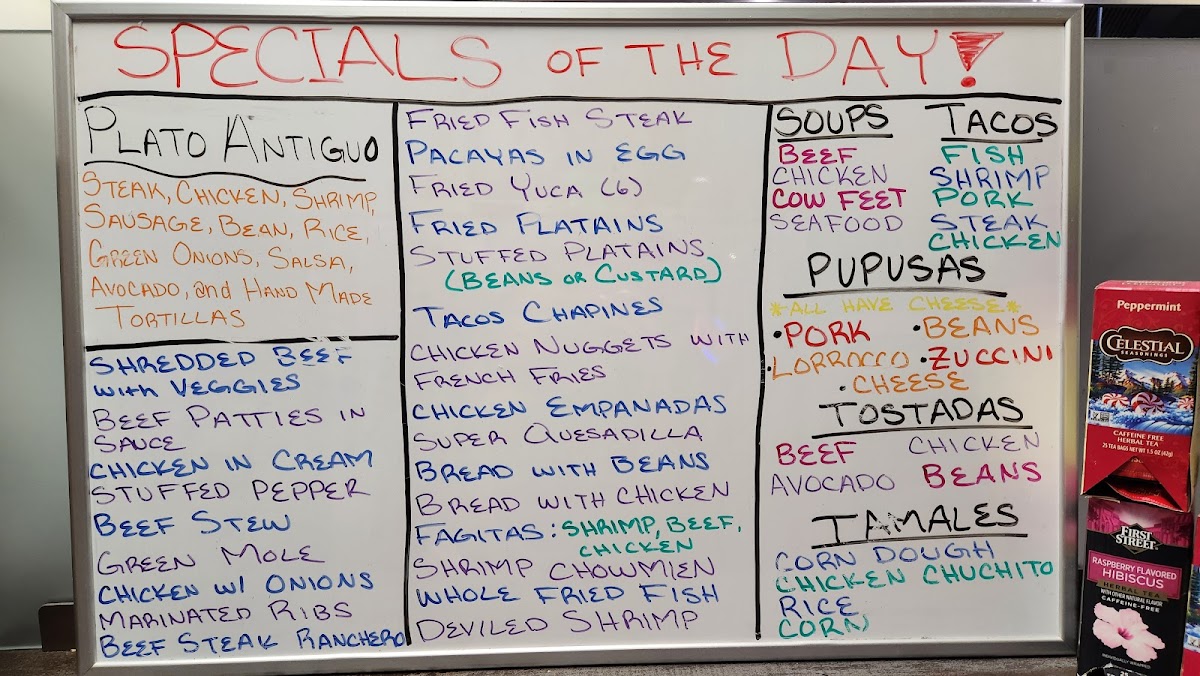 SPECIALS OF THE DAY!
PLATO ANTIGUO
STEAK, CHICKEN, SHRIMP,
SAUSAGE, BEAN, RICE,
GREEN ONIONS, SALSA,
AVOCADO, and HAND MADE
TORTILLAS
SHREDDED BEEF
with VEGGIES
BEEF PATTIES IN
SAUCE
CHICKEN IN CREAM
STUFFED PEPPER
BEEF STEW
GREEN MOLE
CHICKEN W/ ONIONS
MARINATED RIBS
BEEF STEAK RANCHERO
FRIED FISH STEAK
PACAYAS IN EGG
FRIED YUCA (6)
FRIED PLATAINS
STUFFED PLATAINS
(BEANS OR CUSTARD)
TACOS CHAPINES
CHICKEN NUGGETS WITH
FRENCH FRIES
CHICKEN EMPANADAS
SUPER QUESADILLA
BREAD WITH BEANS
BREAD WITH CHICKEN
FAGITAS: SHRIMP, BEEF,
CHICKEN
SHRIMP CHOWMIEN
WHOLE FRIED FISH
DEVILED SHRIMP
SOUPS
BEEF
CHICKEN
COW FEET
SEAFOOD
TACOS
FISH
SHRIMP
PORK
STEAK
CHICKEN
PUPUSAS
*ALL HAVE CHEESE*
• PORK • BEANS
• LORROCCO • ZUCCINI
• CHEESE
TOSTADAS
BEEF CHICKEN
AVOCADO BEANS
TAMALES
CORN DOUGH
CHICKEN CHUCHITO
RICE
CORN
Peppermint
CELESTIAL
SEASONINGS
CAFFEINE FREE
HERBAL TEA
25 TEA BAGS NET WT 1.5 OZ (42g)
FIRST
STREET
RASPBERRY FLAVORED
HIBISCUS
HERBAL TEA
WITH OTHER NATURAL FLAVOR
CAFFEINE-FREE
INDIVIDUALLY WRAPPED